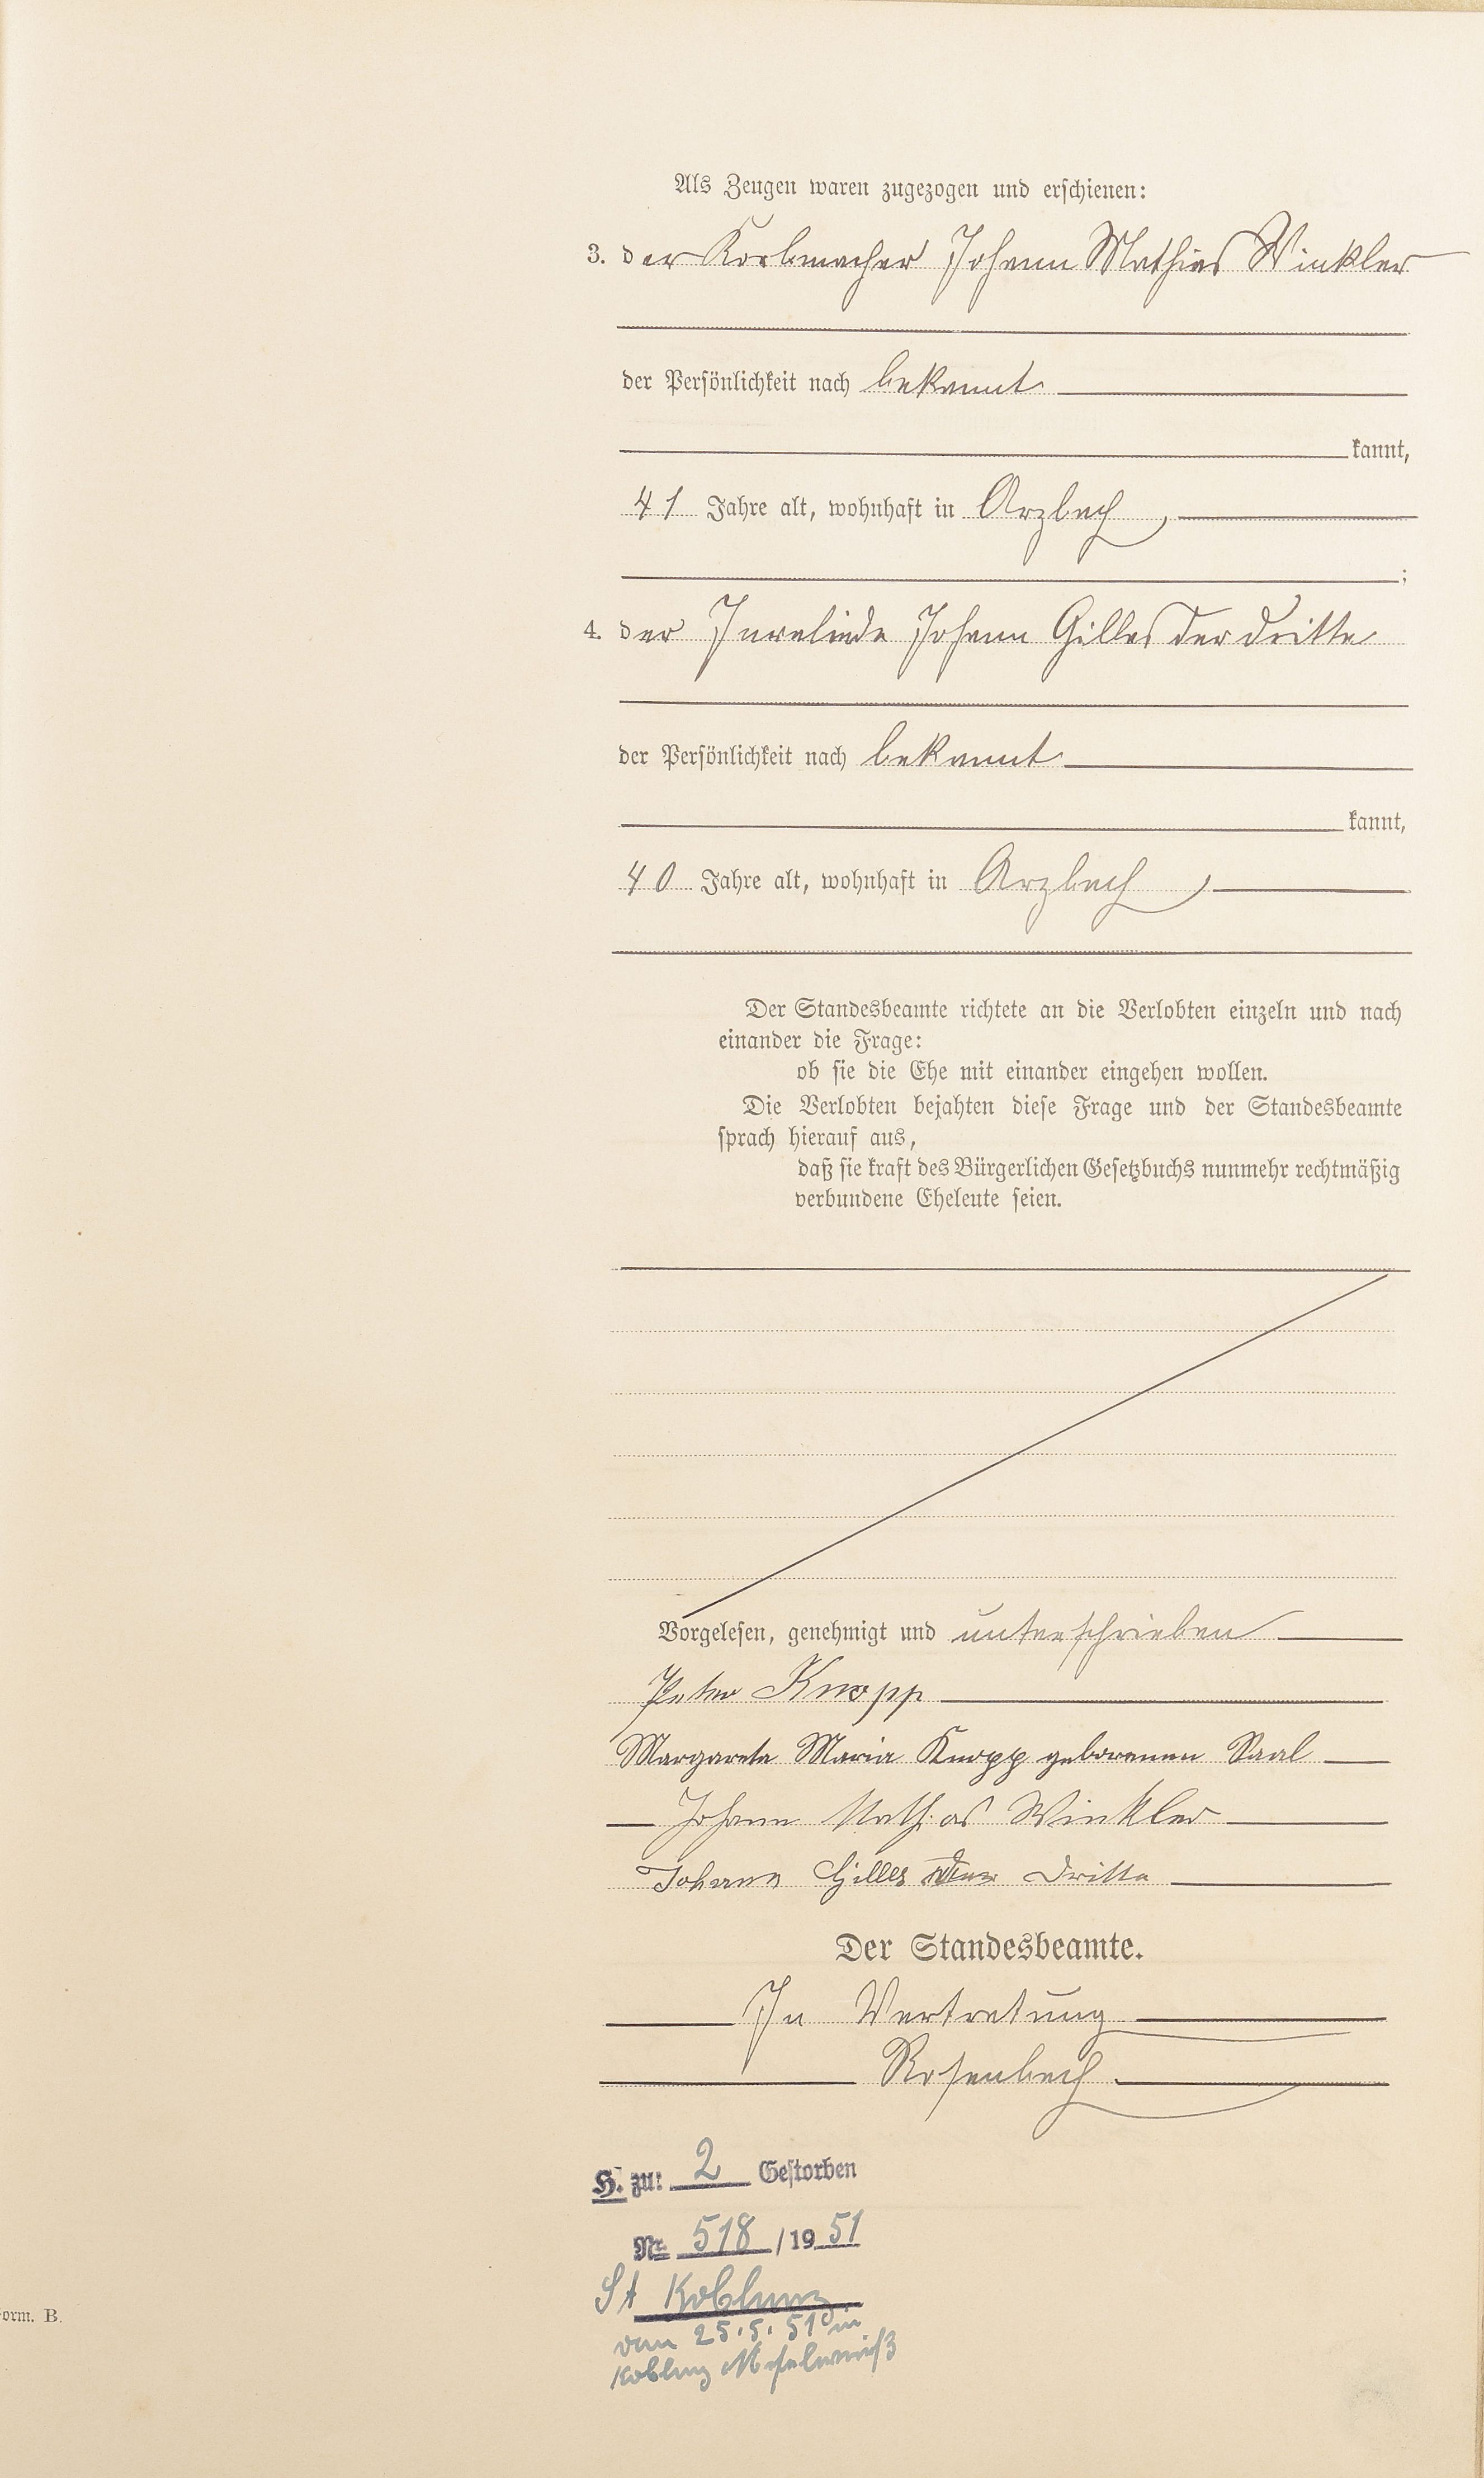 Als Zeugen waren zugezogen und erschienen:
3. der Korbmacher Johann Mathias Winkler
der Persönlichkeit nach bekannt
kannt,
41 Jahre alt, wohnhaft in Arzbach,
;
4. der Invalide Johann Gilles der dritte
der Persönlichkeit nach bekannt
kannt,
40 Jahre alt, wohnhaft in Arzbach,
Der Standesbeamte richtete an die Verlobten einzeln und nach
einander die Frage:
ob sie die Ehe mit einander eingehen wollen.
Die Verlobten bejahten diese Frage und der Standesbeamte
sprach hierauf aus,
daß sie kraft des Bürgerlichen Gesetzbuchs nunmehr rechtmäßig
verbundene Eheleute seien.
Vorgelesen, genehmigt und unterschrieben
Peter Knopp
Margareta Maria Knopp geborenen Saal
Johann Mathias Winkler
Johann Gilles der Dritte
Der Standesbeamte.
In Vertretung
Rosenbach
H. zu: 2 Gestorben
Nr. 518 / 19 51
St Koblenz
vom 25.5.51 in
Koblenz Moselweiß
orm. B.